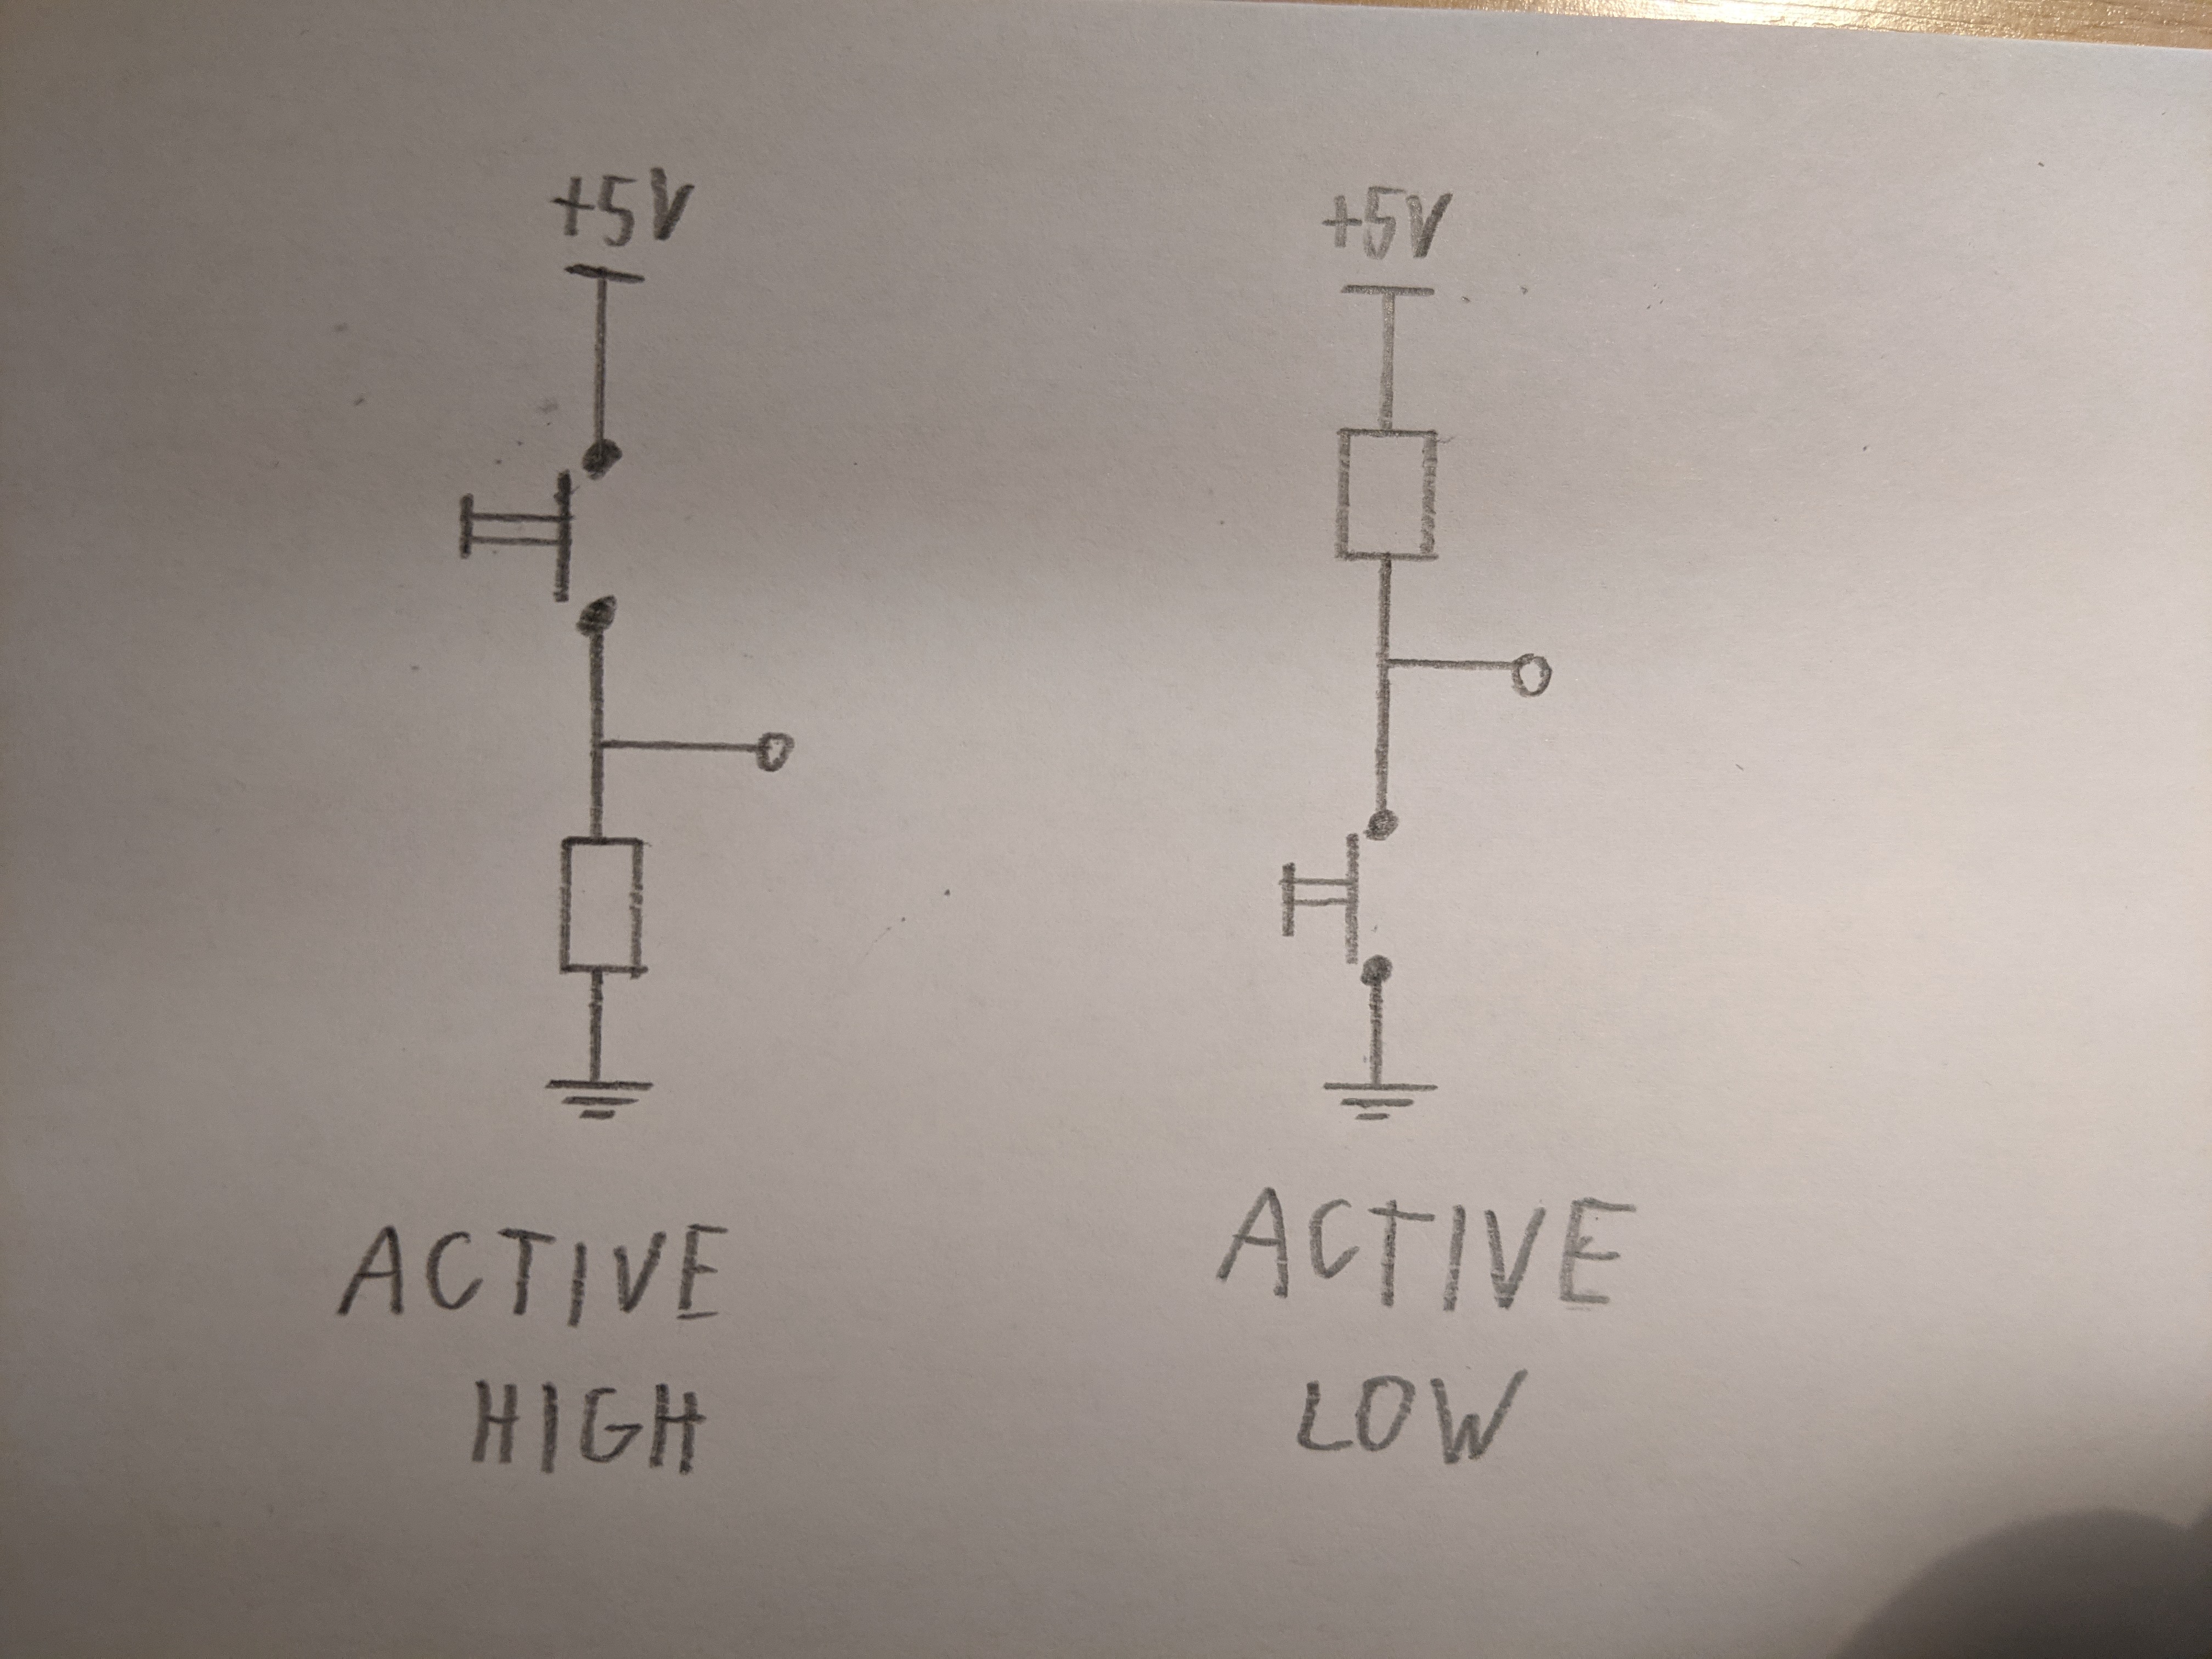 +5V
+5V
ACTIVE
HIGH
ACTIVE
LOW